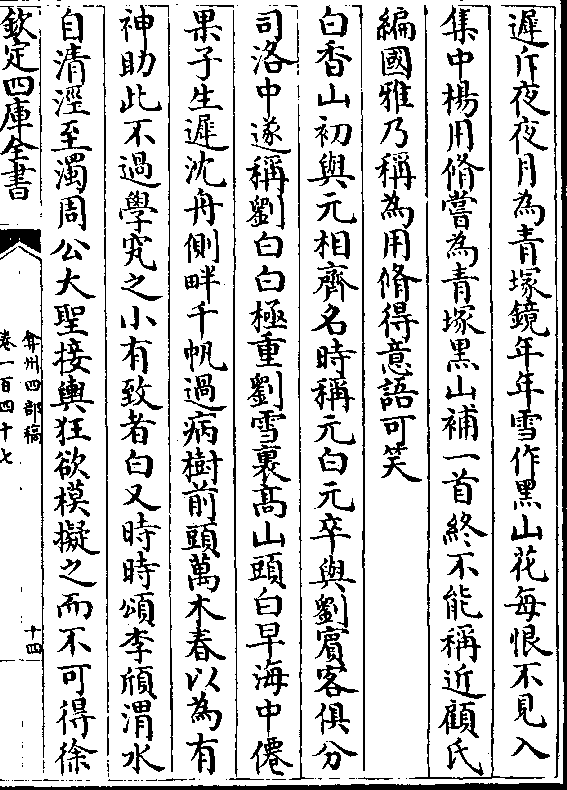 遲斤夜夜月為青塚鏡年年雪作黑山花每恨不見入
集中楊用脩嘗為青塚黒山補一首終不能稱近顧氏
編國雅乃稱為用脩得意語可笑
白香山初與元相齊名時稱元白元卒與劉賔客俱分
司洛中遂稱劉白白極重劉雪裏髙山頭白早海中僊
果子生遲沈舟側畔千帆過病樹前頭萬木春以為有
神助此不過學究之小有致者白又時時頌李頎渭水
自清涇至濁周公大聖接輿狂欲模擬之而不可得徐
欽定四庫全書
弇州四部稿
卷一百四十七
十四